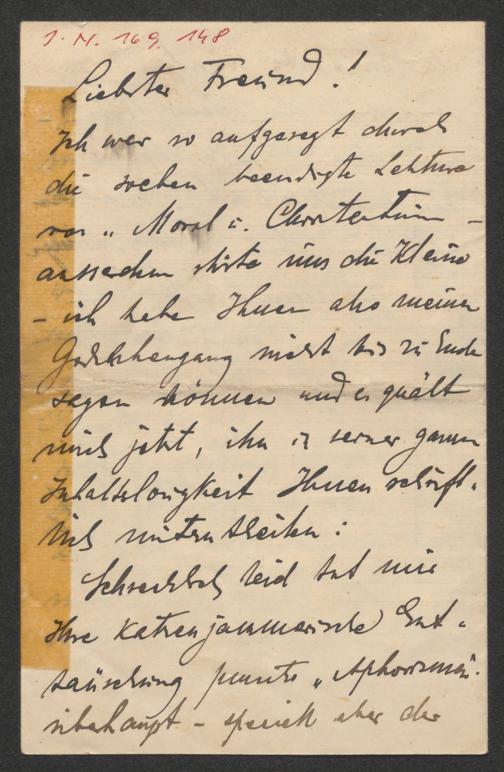 I. N. 169.148
Liebster Freund!
Ich war so aufgeregt durch
die soeben beendigte Lektüre
von „Moral u. Christentum –
ausserdem störte uns die Kleine
– ich habe Ihnen also meinen
Gedankengang nicht bis zu Ende
sagen können und es quält
mich jetzt, ihn in seiner ganzen
Inhaltslosigkeit Ihnen schrift-
lich mitzutheilen:
Schrecklich leid tut mir
Ihre katzenjammerische Ent-
täuschung puncto „Aphorismen“
überhaupt – speciell aber der